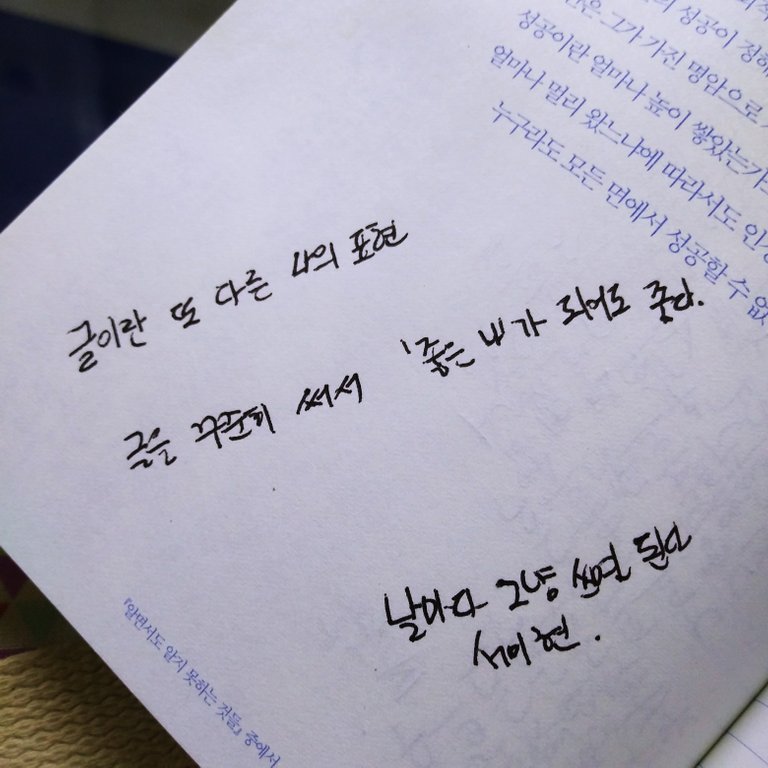 성공이 정해
그가 가진 명암으로
성공이란 얼마나 높이 쌓았는가
얼마나 멀리 왔느냐에 따라서도
누구라도 모든 면에서 성공할 수 없
글이란 또 다른 나의 표현
글을 꾸준히 써서 '좋은 내가 되어도 좋다.
날마다 그냥 쓰면 된다
서미현.
『알면서도 알지 못하는 것들』 중에서